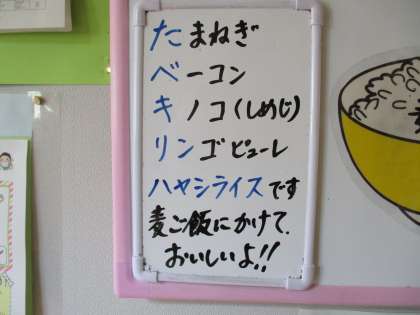 たまねぎ
ベーコン
キノコ(しめじ)
リンゴピューレ
ハヤシライスです
麦ご飯にかけて、
おいしいよ!!